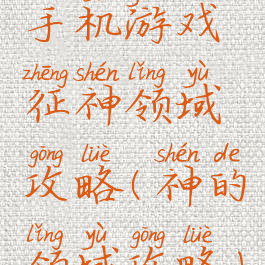 手机游戏
zhēng shén lǐng yù
征神领域
gōng lüè shén de
攻略(神的
lǐng yù gōng lüè
领域攻略)